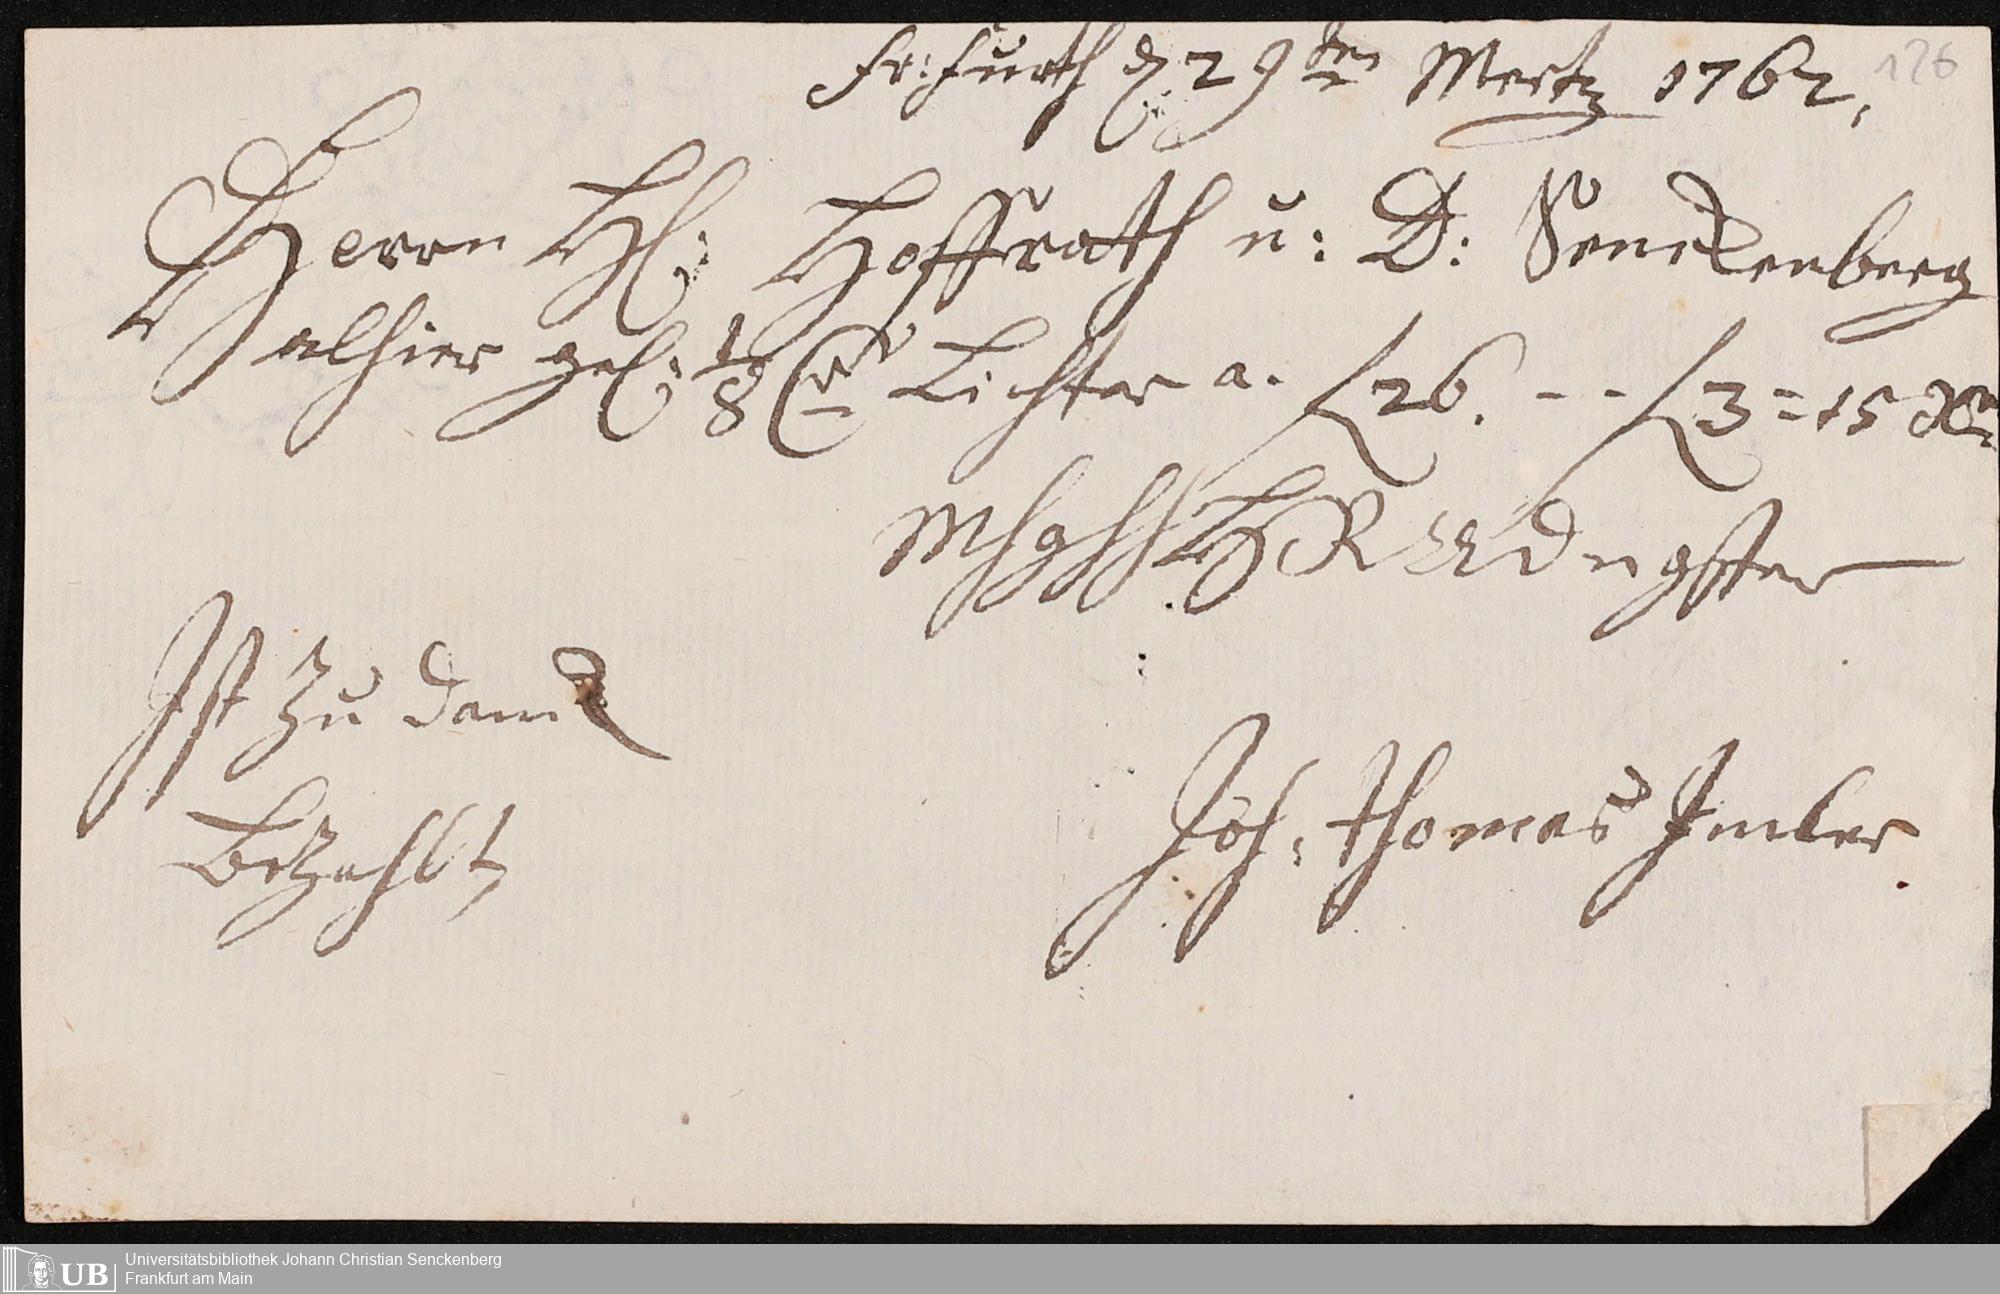 Fr: furth d 29ten Mertz 1762,
126
Herrn H: Hoffrath u: D: Senckenberg
alhier gel: 1/8 Cr Lichter a. f 26. - - f 3 = 15 Xr
Ist zu danck
Bezahlt,
Joh: thomas Imler
Universitätsbibliothek Johann Christian Senckenberg
UB Frankfurt am Main